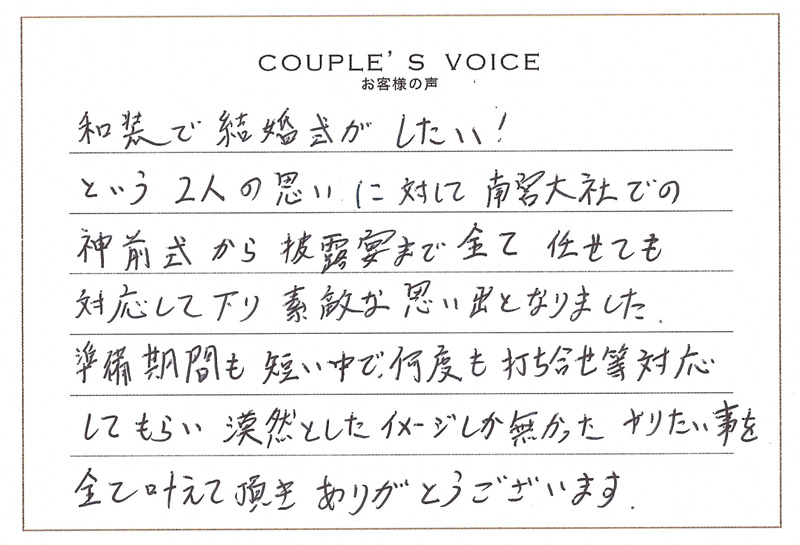 COUPLE'S VOICE
お客様の声
和装で結婚式がしたい!
という2人の思いに対して南宮大社での
神前式から披露宴まで全て任せても
対応して下り素敵な思い出となりました.
準備期間も短い中で、何度も打ち合せ等対応
してもらい漠然としたイメージしか無かったやりたい事を
全て叶えて頂きありがとうございます.